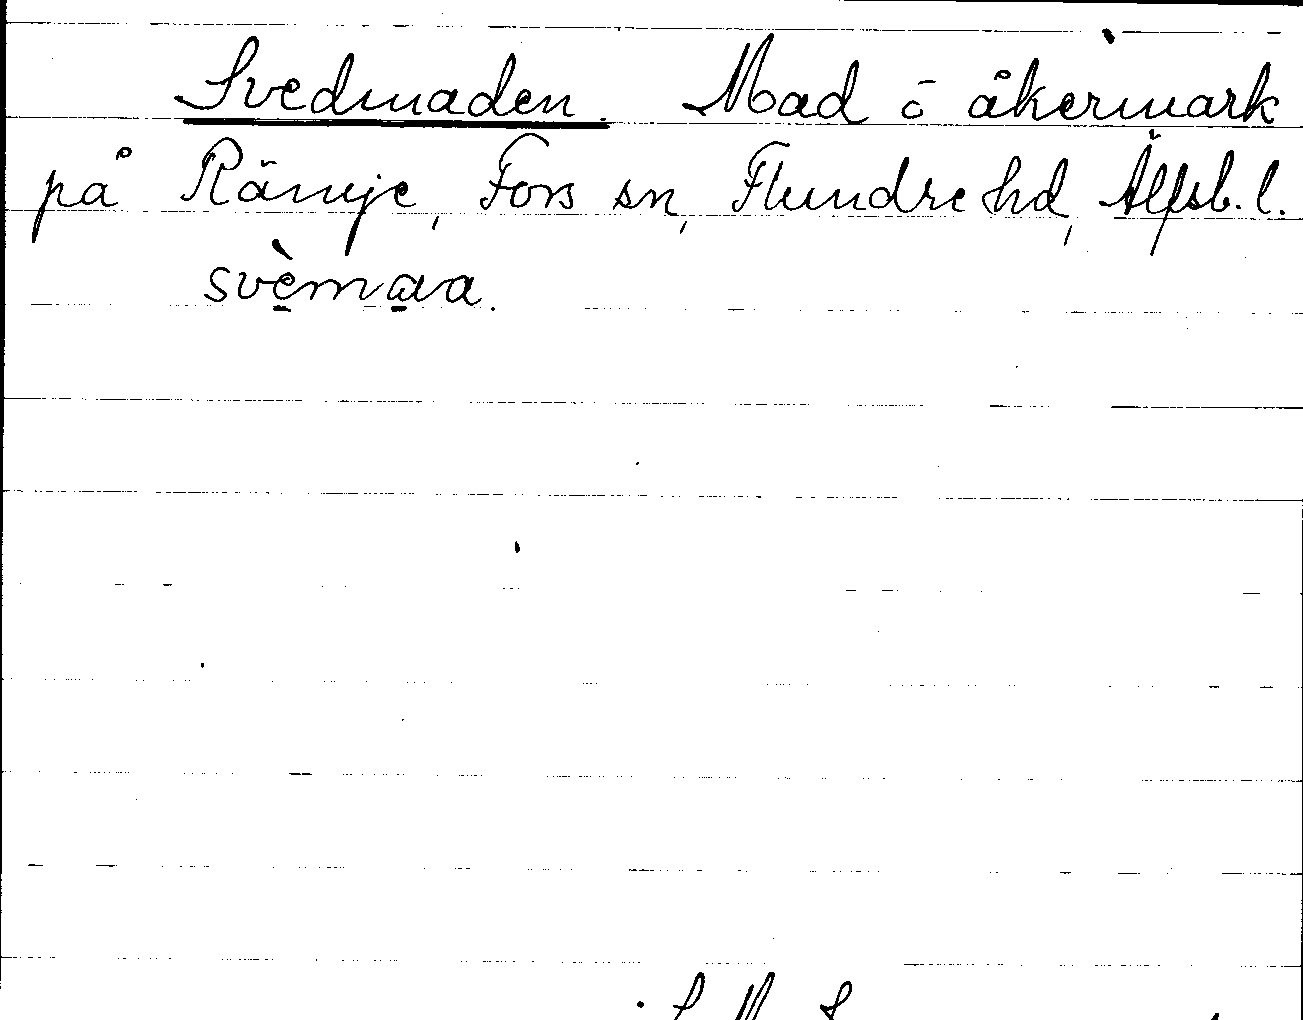 Svedmaden. Mad ō åkermark
på Rämje, Fors sn, Flundre hd, Älfsb. l.
svèmava.